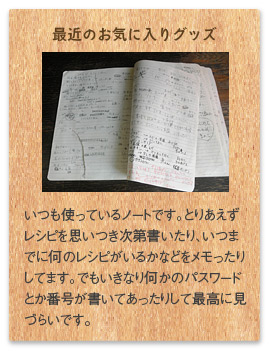 最近のお気に入りグッズ
いつも使っているノートです。とりあえず
レシピを思いつき次第書いたり、いつま
でに何のレシピがいるかなどをメモったり
してます。でもいきなり何かのパスワード
とか番号が書いてあったりして最高に見
づらいです。